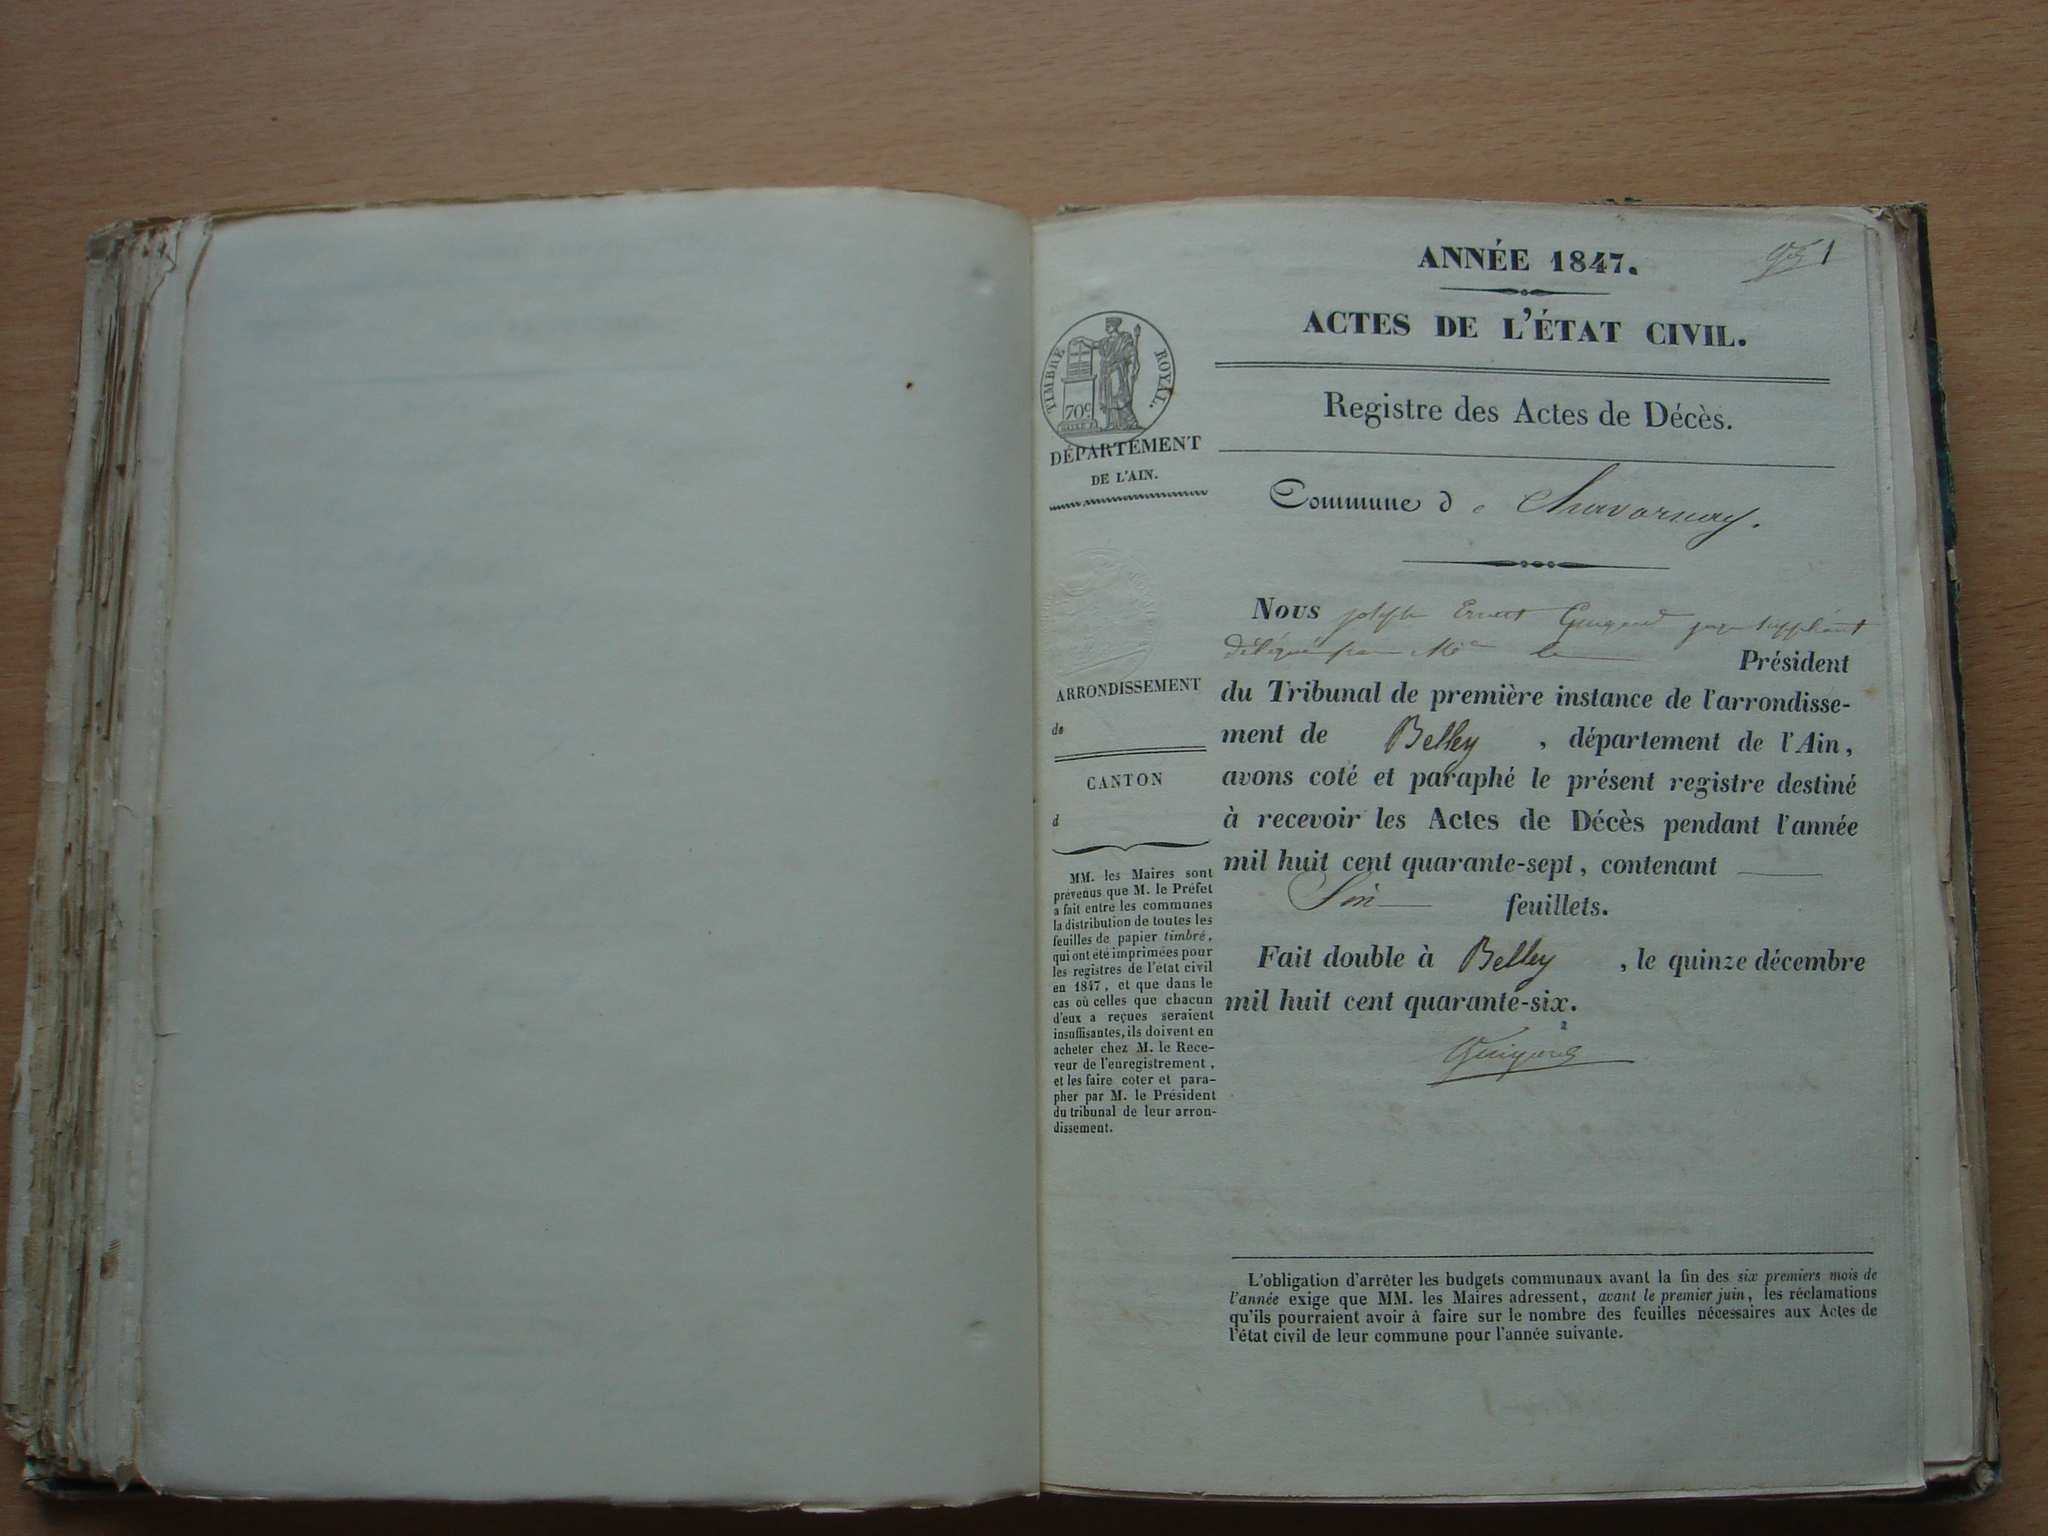 ANNÉE 1847.
1
ACTES DE L'ÉTAT CIVIL.
Registre des Actes de Décès.
TIMBRE ROYAL.
70c
DÉPARTEMENT
DE L'AIN.
Commune de Chavornay.
Nous Joseph Ernest Guigard juge suppléant
délégué par Mr le Président
du Tribunal de première instance de l'arrondisse-
ment de Belley, département de l'Ain,
avons coté et paraphé le présent registre destiné
à recevoir les Actes de Décès pendant l'année
mil huit cent quarante-sept, contenant
feuillets.
Fait double à Belley, le quinze décembre
mil huit cent quarante-six.
Guigard
ARRONDISSEMENT
de
CANTON
d
MM. les Maires sont
prévenus que M. le Préfet
a fait entre les communes
la distribution de toutes les
feuilles de papier timbré,
qui ont été imprimées pour
les registres de l'état civil
en 1847, et que dans le
cas où celles que chacun
d'eux a reçues seraient
insuffisantes, ils doivent en
acheter chez M. le Rece-
veur de l'enregistrement,
et les faire coter et para-
pher par M. le Président
du tribunal de leur arron-
dissement.
L'obligation d'arrêter les budgets communaux avant la fin des six premiers mois de
l'année exige que MM. les Maires adressent, avant le premier juin, les réclamations
qu'ils pourraient avoir à faire sur le nombre des feuilles nécessaires aux Actes de
l'état civil de leur commune pour l'année suivante.